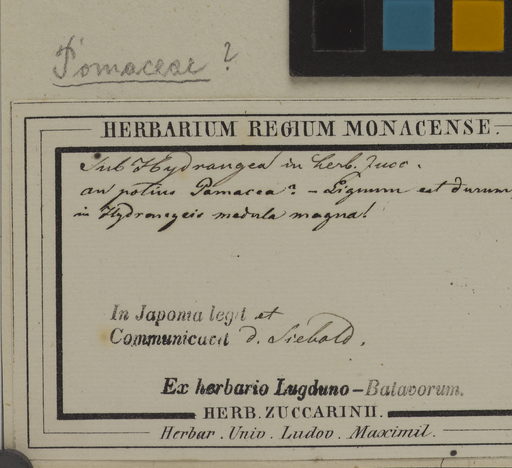 Pomaceae ?
HERBARIUM REGIUM MONACENSE.
Sub Hydrangea in herb. Zucc.
an potius Pomacea? – Lignum est durum,
in Hydrangeis medula magna!
In Japonia legit et
Communicavit d. Siebold.
Ex herbario Lugduno–Batavorum.
HERB. ZUCCARINII.
Herbar. Univ. Ludov. Maximil.